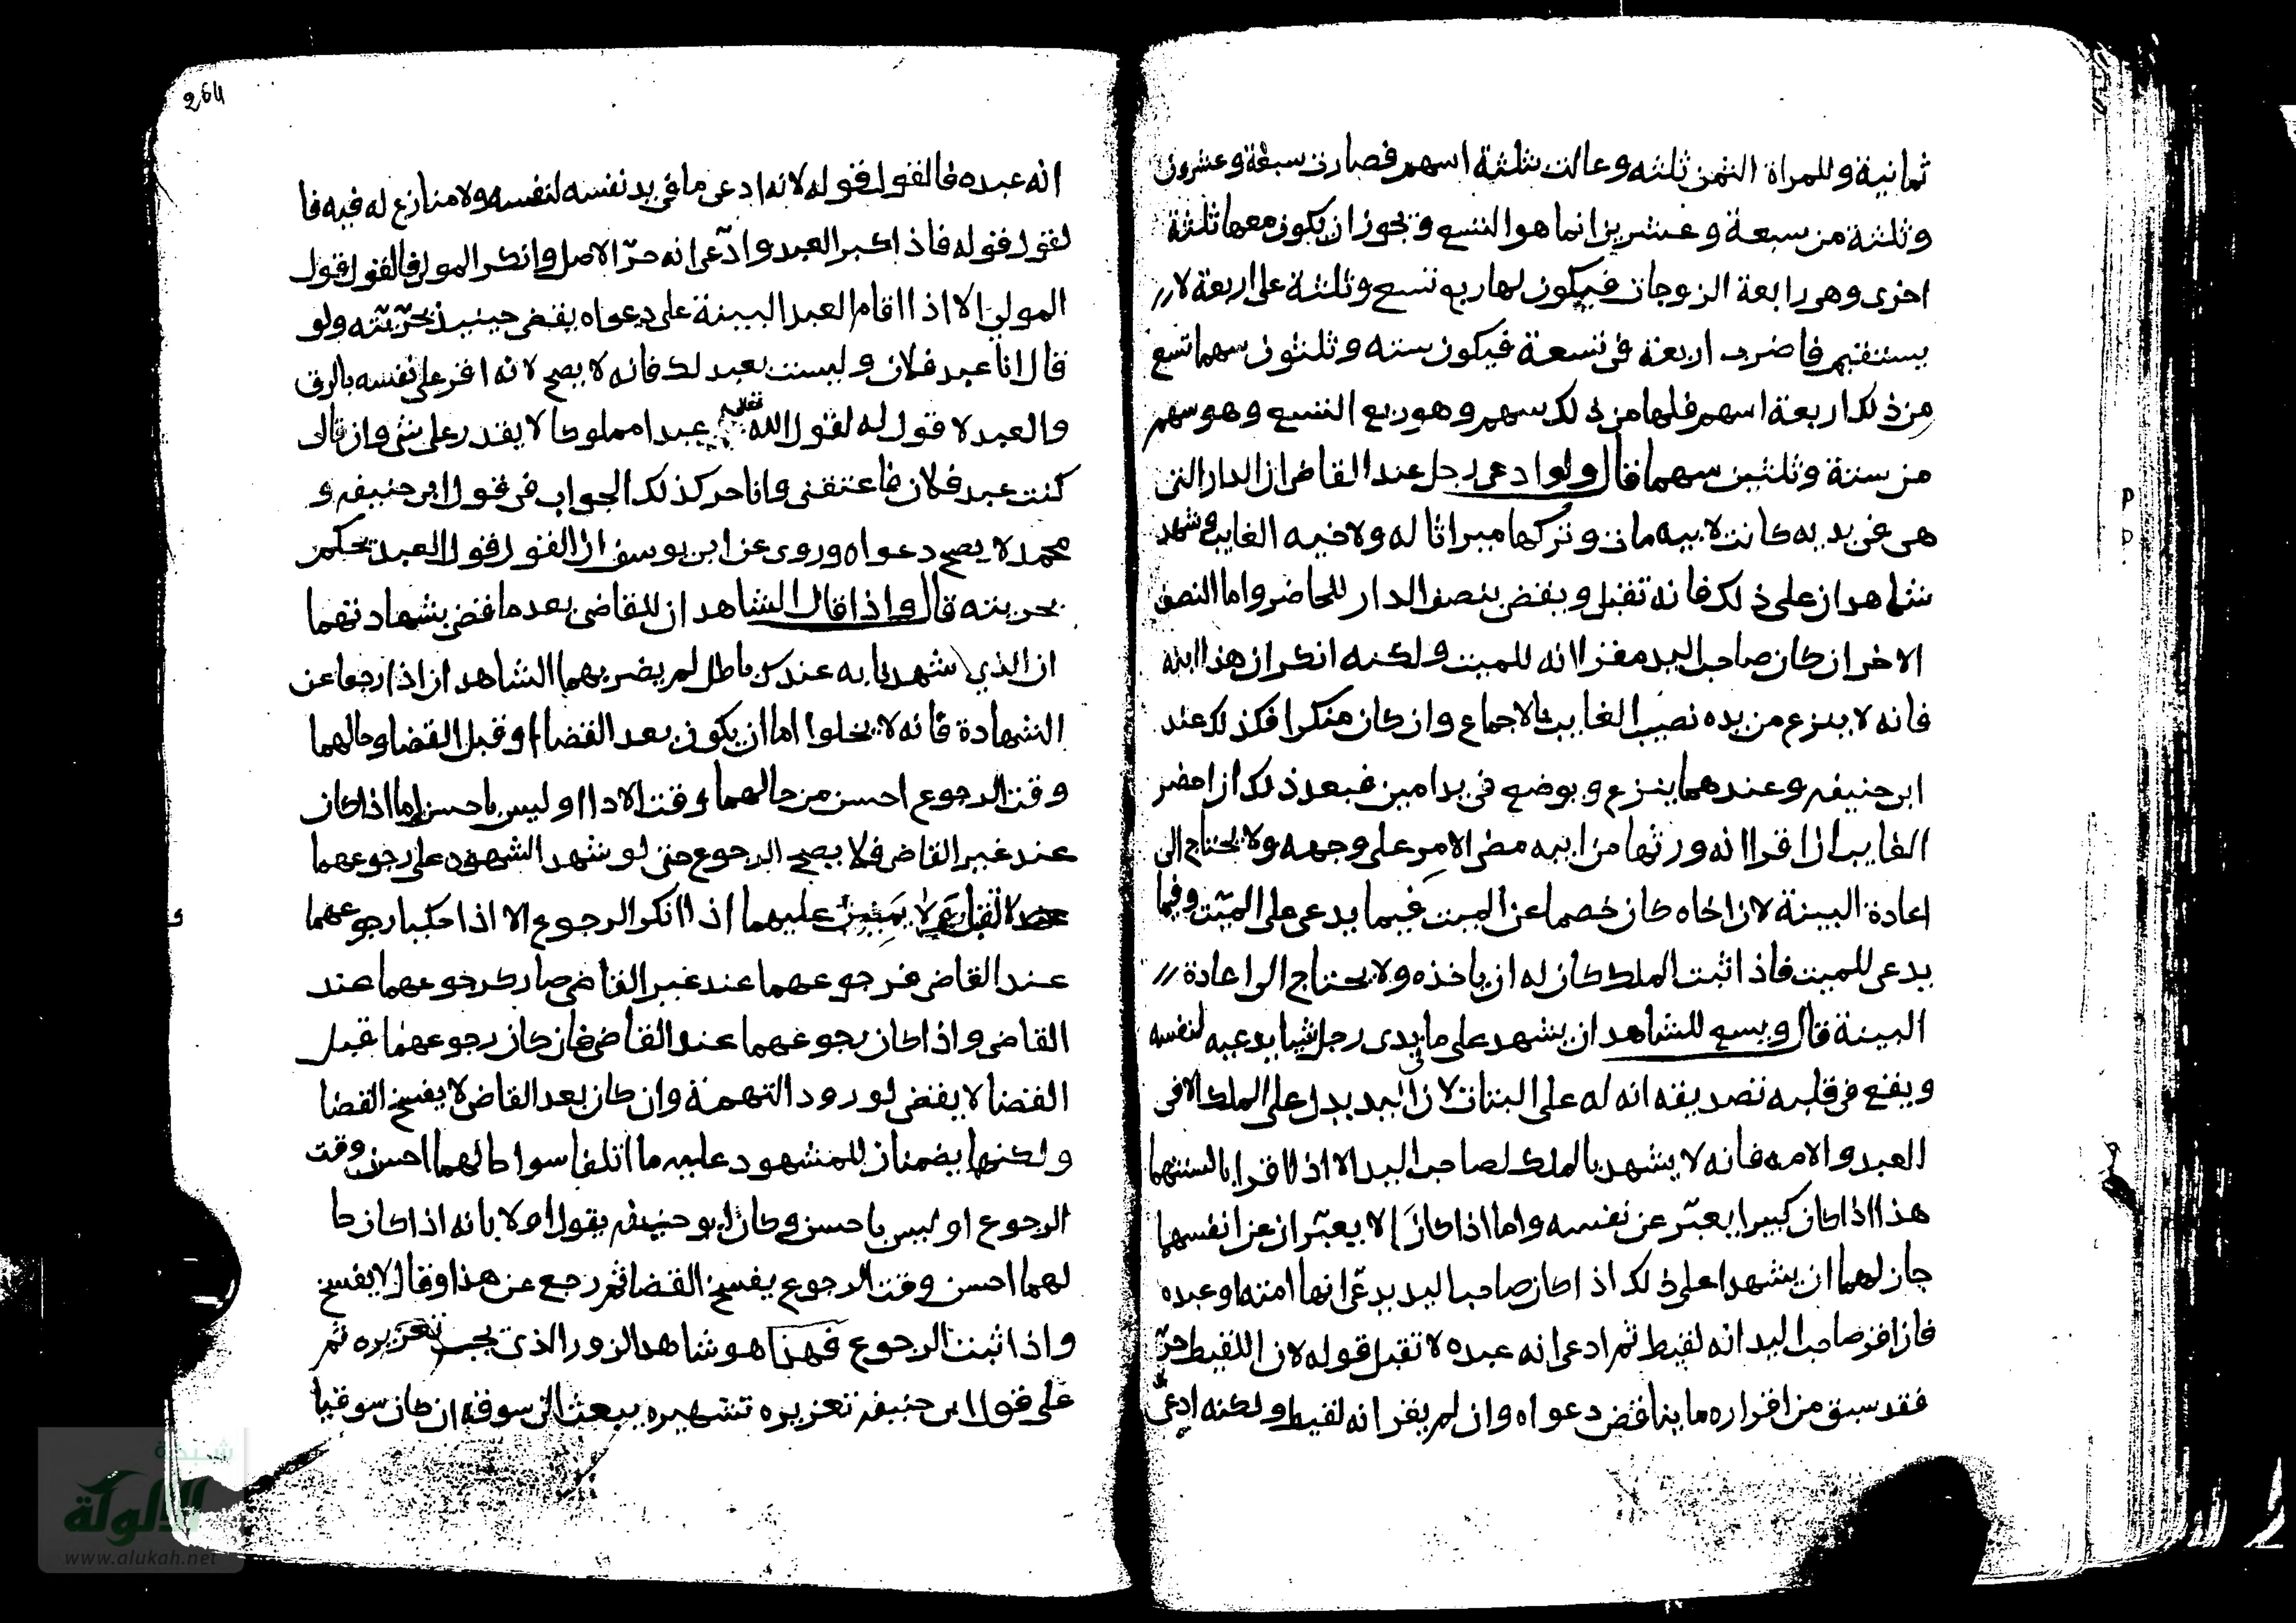 ثمانية وللمراة الثمن ثلثه وعالت بثلثة اسهم فصارت سبعة وعشرون
وثلثة من سبعة وعشرين انما هو التسع ويجوز ان يكون معها ثلثة
اخرى وهى رابعة الزوجات فيكون لها ربع تسع وثلثة على اربعة لا
يستقيم فاضرب اربعة فى تسعة فيكون سته وثلثون سهما تسع
من ذلك اربعة اسهم فلها من ذلك سهم وهو ربع التسع وهو سهم
من ستة وثلثين سهما قال ولو ادعى رجل عند القاضى ان الدار التى
هى فى يديه كانت لابيه مات وتركها ميراثا له ولاخيه الغايب وشهد
شاهدان على ذلك فانه تقبل ويقضى بنصف الدار للحاضر واما النصف
الاخر ان كان صاحب اليد مقرا انه للميت ولكنه انكر ان هذا ابنه
فانه لا ينزع من يده نصيب الغايب بالاجماع وان كان منكرا فكذلك عند
ابى حنيفه وعندهما ينزع ويوضع فى يد امين فبعد ذلك ان احضر
الغايب ان اقرا انه ورثها من ابيه مضى الامر على وجهه ولا يحتاج الى
اعادة البينة لان اخاه كان خصما عن الميت فيما يدعى على الميت وفيما
يدعى للميت فاذا ثبت الملك كان له ان ياخذه ولا يحتاج الى اعادة
البينة قال ويسع للشاهد ان يشهد على ما فى يدى رجل شيا يدعيه لنفسه
ويقع فى قلبه تصديقه انه له على البتات لان اليد يدل على الملك الا فى
العبد والامه فانه لا يشهد بالملك لصاحب اليد الا اذا اقرا بالسنتهما
هذا اذا كان كبيرا يعبر عن نفسه واما اذا كانا لا يعبران عن انفسهما
جاز لهما ان يشهدا على ذلك اذا كان صاحب اليد يدعى انها امته او عبده
فان اقر صاحب اليد انه لقيط ثم ادعى انه عبده لا تقبل قوله لان اللقيط حر
فقد سبق من اقراره ما يناقض دعواه وان لم يقر انه لقيط ولكنه ادعى
264
انه عبده فالقول قوله لانه ادعى ما فى يد نفسه لنفسه ولا منازع له فيه فا
لقول قوله فاذا كبر العبد وادعى انه حر الاصل وانكر المولى فالقول قول
المولى الا اذا اقام العبد البينة على دعواه يقضى حينيذ بحريته ولو
قال انا عبد فلان وليست بعبد لك فانه لا يصح لانه اقر على نفسه بالرق
والعبد لا قول له لقول الله تعالى عبدا مملوكا لا يقدر على شى وان قال
كنت عبد فلان فاعتقنى وانا حر كذلك الجواب فى قول ابى حنيفه و
محمد لا يصح دعواه وروى عن ابى يوسف ان القول قول العبد يحكم
بحريته قال واذا قال الشاهدان للقاضى بعد ما قضى بشهادتهما
ان الذى شهدنا به عندك باطل لم يضر بهما الشاهدان اذا رجعا عن
الشهادة فانه لا يخلوا اما ان يكون بعد القضا او قبل القضا وحالهما
وقت الرجوع احسن من حالهما وقت الادا او ليس باحسن اما اذا كان
عند غير القاضى فلا يصح الرجوع حتى لو شهد الشهود على رجوعهما
لا يمين عليهما اذا انكر الرجوع الا اذا حكيا رجوعهما
عند القاضى فرجوعهما عند غير القاضى صار كرجوعهما عند
القاضى واذا كان رجوعهما عند القاضى فان كان رجوعهما قبل
القضا لا يقضى لورود التهمة وان كان بعد القاضى لا يفسخ القضا
ولكنها يضمنان للمشهود عليه ما اتلفا سوا كالهما احسن وقت
الرجوع او ليس باحسن وكان ابو حنيفه يقول اولا بانه اذا كان حا
لهما احسن وقت الرجوع يفسخ القضا ثم رجع عن هذا وقال لا يفسخ
واذا ثبت الرجوع فهذا هو شاهد الزور الذى يجب تعزيره ثم
على قول ابى حنيفه تعزيره تشهيره يبعث الى سوقه ان كان سوقيا
شبكة
الألوكة
www.alukah.net